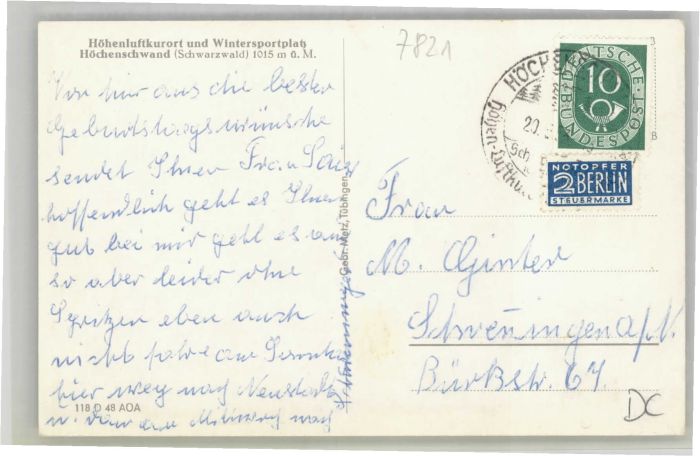 Höhenluftkurort und Wintersportplatz
Höchenschwand (Schwarzwald) 1015 m ü. M.
Von hier aus die besten
Geburtstagswünsche
sendet Ihnen Frau
hoffendlich geht es Ihnen
gut bei mir geht es auch
so aber leider ohne
Spritzen eben auch
nicht fahre am Sonntag
hier weg nach Neustadt
u. dann am Mittwoch nach
Schwenningen
118 D 48 AOA
Gebr. Metz, Tübingen
7821
HÖCHENS
20.
Höhen-Luftkur
DEUTSCHE
BUNDESPOST
10
NOTOPFER
2 BERLIN
STEUERMARKE
Frau
M. Ginter
Schwenningen a/N.
Bürkstr. 67
DC